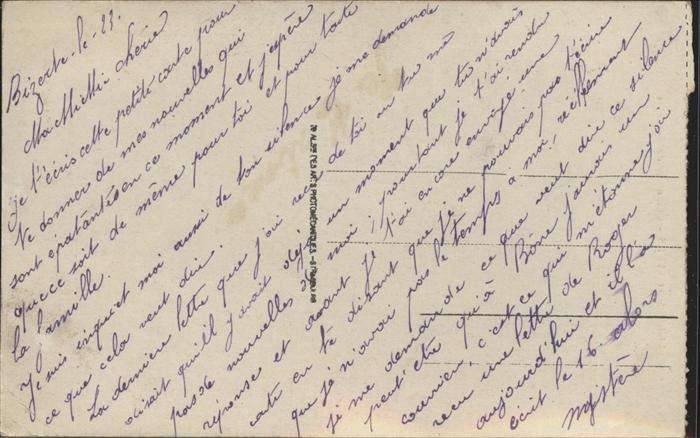 Bizerte le 23.
Ma Mimi chérie
Je t'écris cette petite carte pour
te donner de mes nouvelles qui
sont épatantes en ce moment et j'espère
que ce soit de même pour toi et pour toute
la famille.
Je suis inquiet moi aussi de ton silence je me demande
ce que cela veut dire.
La dernière lettre que j'ai reçu de toi ou tu me
disait qu'il y avait déjà un moment que tu n'avais
pas de nouvelles de moi, pourtant je t'ai rendu
réponse et avant je t'ai encore envoyé une
carte en te disant que je ne pouvais pas t'écrire
que je n'avais pas le temps à moi, réellement
je me demande ce que veut dire ce silence
peut'être qu'à Bône jamais un
courrier, c'est ce qui m'étonne j'ai
reçu une lettre de Roger
aujourd'hui et il l'a
écrit le 16 alors
mystère